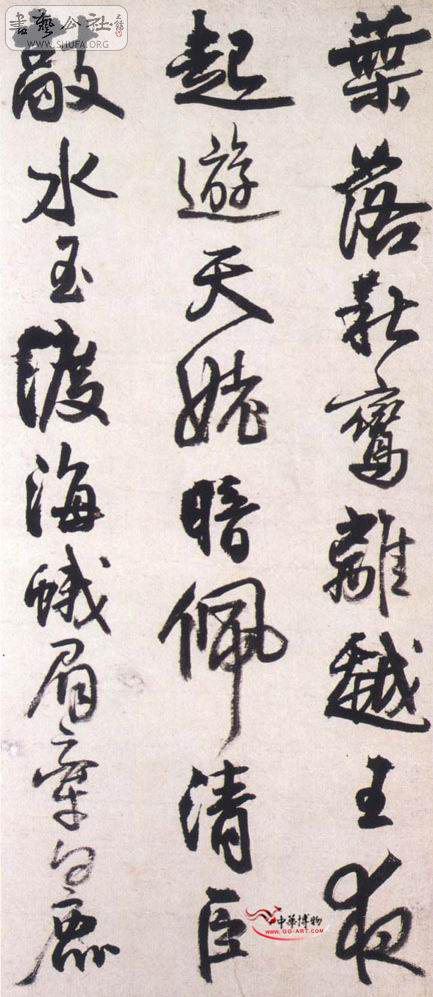 葉落秋鸞離越王夜
起遊天姥暗佩清臣
敲水玉渡海蛾眉牽白鹿
書藝公社
WWW.SHUFA.ORG
中華博物
WWW.GG-ART.COM